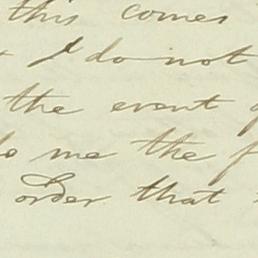 this comes
I do not
the event
me the
order that